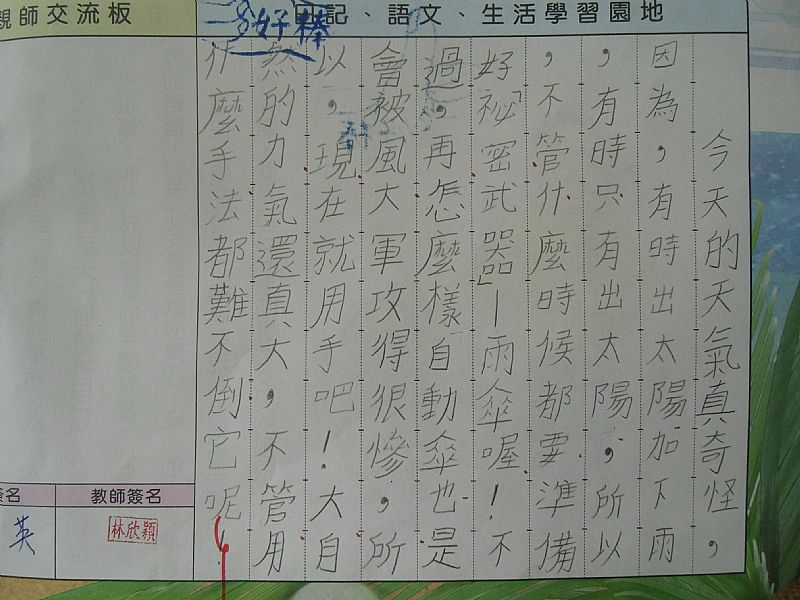 親師交流板
日記、語文、生活學習園地
好棒
今天的天氣真奇怪，
因為，有時出太陽加下雨
，有時只有出太陽，所以
，不管什麼時候都要準備
好「祕密武器」—雨傘喔！不
過，再怎麼樣自動傘也是
會被風大軍攻得很慘，所
以，現在就用手吧！大自
然的力氣還真大，不管用
什麼手法都難不倒它呢
簽名
教師簽名
英
林欣穎